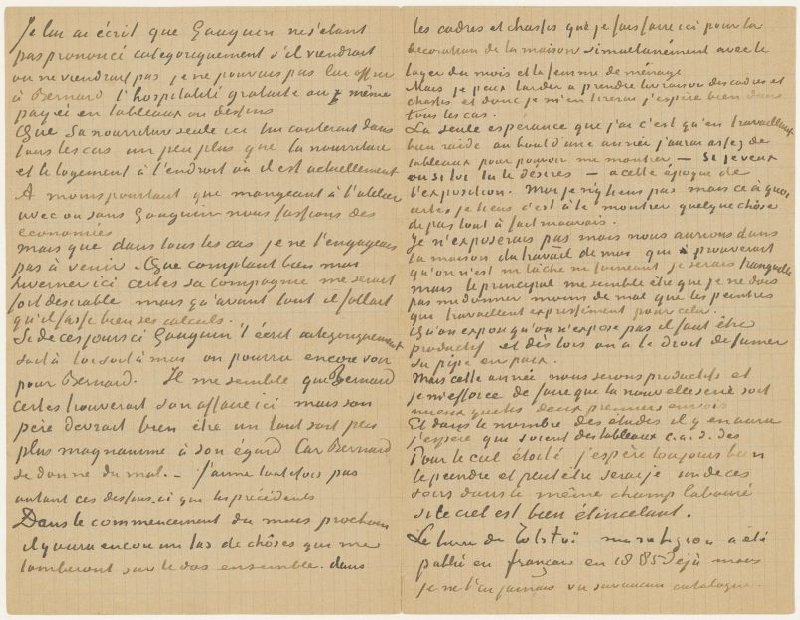 Je lui ai écrit que Gauguin ne s'étant
pas prononcé catégoriquement s'il viendrait
ou ne viendrait pas je ne pouvais pas lui offrir
à Bernard l'hospitalité gratuite ou même
payée en tableaux ou dessins
Que sa nourriture seule ici lui couterait dans
tous les cas un peu plus que la nourriture
et le logement à l'endroit où il est actuellement
A moins pourtant que mangeant à l'atelier
avec ou sans Gauguin nous fassions des
économies
mais que dans tous les cas je ne l'engageais
pas à venir. Que comptant bien moi
hiverner ici certes sa compagnie me serait
fort desirable mais qu'avant tout il fallait
qu'il fasse bien ses calculs.
Si de ces jours ci Gauguin t'écrit catégoriquement
soit à toi soit à moi on pourra encore voir
pour Bernard. Il me semble que Bernard
certes trouverait son affaire ici mais son
père devrait bien être un tant soit peu
plus magnanime à son égard Car Bernard
se donne du mal. – J'aime toutefois pas
autant ces dessins-ci que les précédents
Dans le commencement du mois prochain
il y aura encore un tas de chôses qui me
tomberont sur le dos ensemble. dans
les cadres et chassis que je fais faire ici pour la
decoration de la maison simultanément avec le
loyer du mois et la femme de ménage
Mais je peux tarder a prendre livraison des cadres et
chassis et donc je m'en tirerai j'espère bien dans
tous les cas.
La seule espérance que j'ai c'est qu'en travaillant
bien raide au bout d'une année j'aurai assez de
tableaux pour pouvoir me montrer – si je veux
ou si toi tu le désires – a cette époque de
l'exposition. Moi je n'y tiens pas mais ce à quoi
certes je tiens c'est à te montrer quelque chôse
de pas tout à fait mauvais.
Je n'exposerais pas mais nous aurions dans
la maison du travail de moi qui prouverait
qu'on n'est ni lâche ni faineant je serais tranquille
mais le principal me semble être que je ne dois
pas me donner moins de mal que les peintres
qui travaillent expressément pour cela.
Qu'on expose qu'on n'expose pas il faut être
productif et dès lors on a le droit de fumer
sa pipe en paix.
Mais cette année nous serons productifs et
je m'efforce de faire que la nouvelle serie soit
mieux que les deux premiers envois
Et dans le nombre des études il y en aura
j'espère qui soient des tableaux c.a.d. des
Pour le ciel étoilé j'espère toujours bien
le peindre et peut être serai je un de ces
soirs dans le même champ labouré
si le ciel est bien étincelant.
Le livre de Tolstoï ma religion a été
publié en français en 1885 déjà mais
je ne l'ai jamais vu sur aucun catalogue.